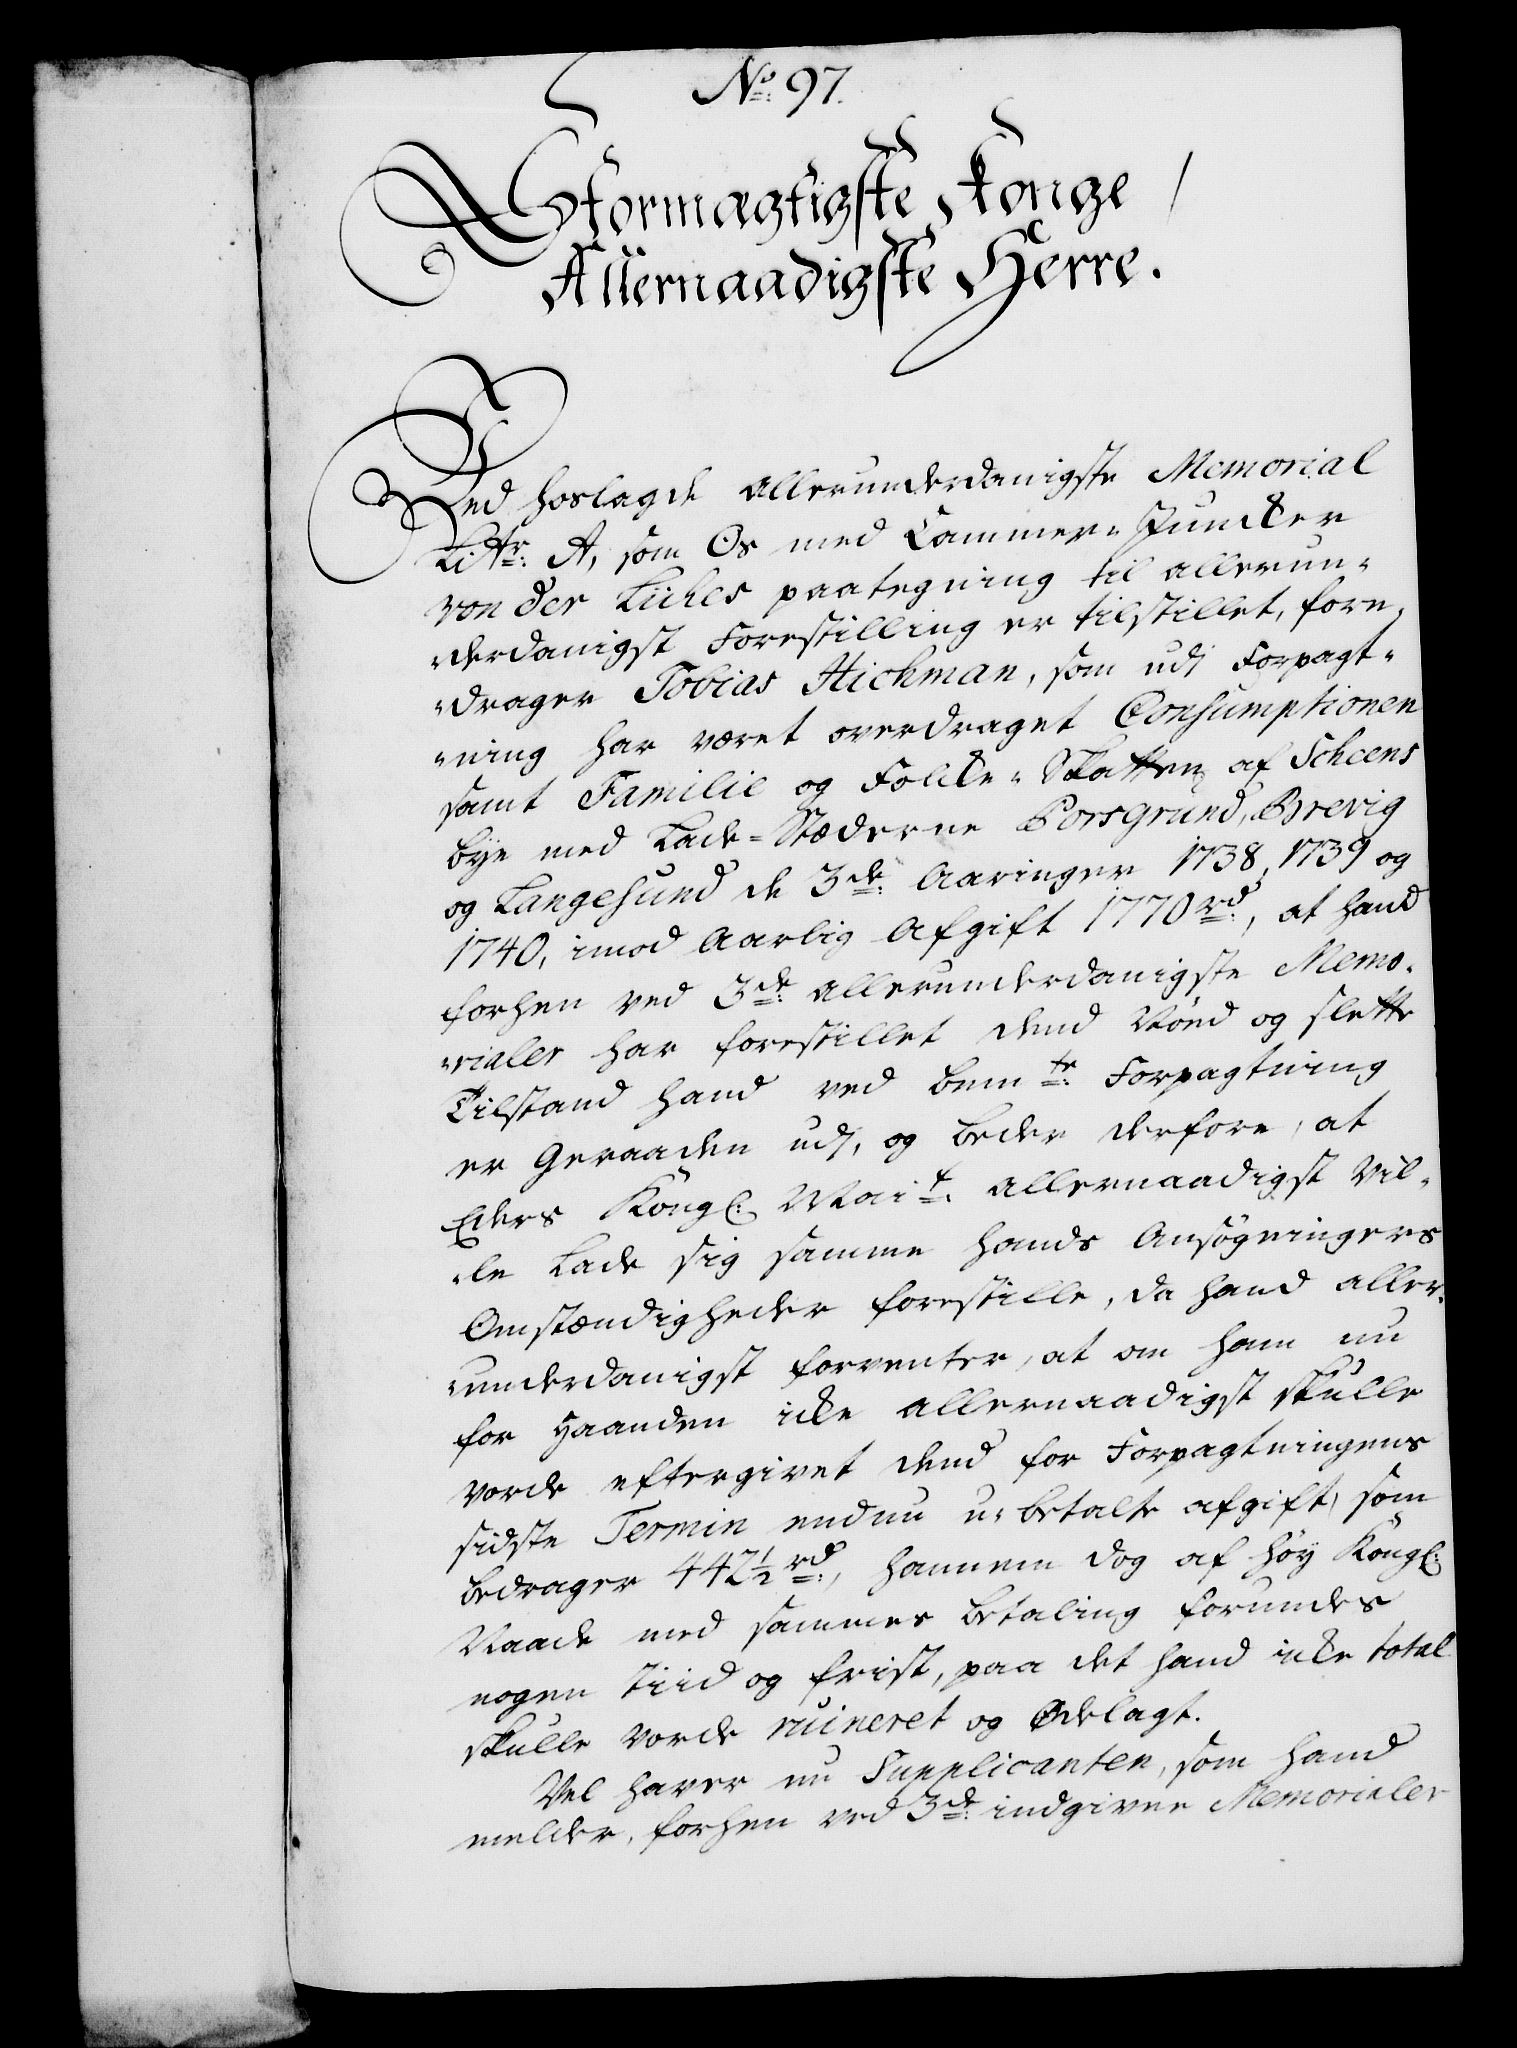 No: 97.
Stormægtigste Konge /
Allernaadigste Herre.
Ved hoslagde allerunderdanigste Memorial
Littr: A, som Os med Cammer-Juncker
von der Lühes paategning til allerun-
-derdanigst Forestilling er tilstillet, fore-
-drager Tobias Hichman, som udj Forpagt-
-ning har været overdraget Consumptionen
samt Familie og Folcke-Skatten af Scheens
bye med Lade-Stæderne Porsgrund, Brevig
og Langesund de 3de: Aaringer 1738, 1739 og
1740, imod Aarlig Afgift 1770 rd:, at hand
forhen ved 3de: allerunderdanigste Memo-
-rialer har forestillet dend Nöed og slette
Tilstand hand ved bemte: Forpagtning
er Geraaden udj, og beder derfore, at
Eders Kongl: Mait: allernaadigst vil-
-le Lade sig samme hands Ansøgningers
Omstændigheder forestille, da hand aller-
-underdanigst forventer, at om ham nu
for Haanden icke allernaadigst skulle
vorde eftergivet dend for Forpagtningens
sidste Termin endnu u-betalte afgift, som
bedrager 442½ rd:, hannem dog af høy Kongl:
Naade med sammes betaling forundes
nogen tiid og frist, paa det hand icke total
skulle vorde ruineret og Ødelagt.
Vel haver nu Supplicanten, som hand
melder, forhen ved 3de: indgivne Memorialer